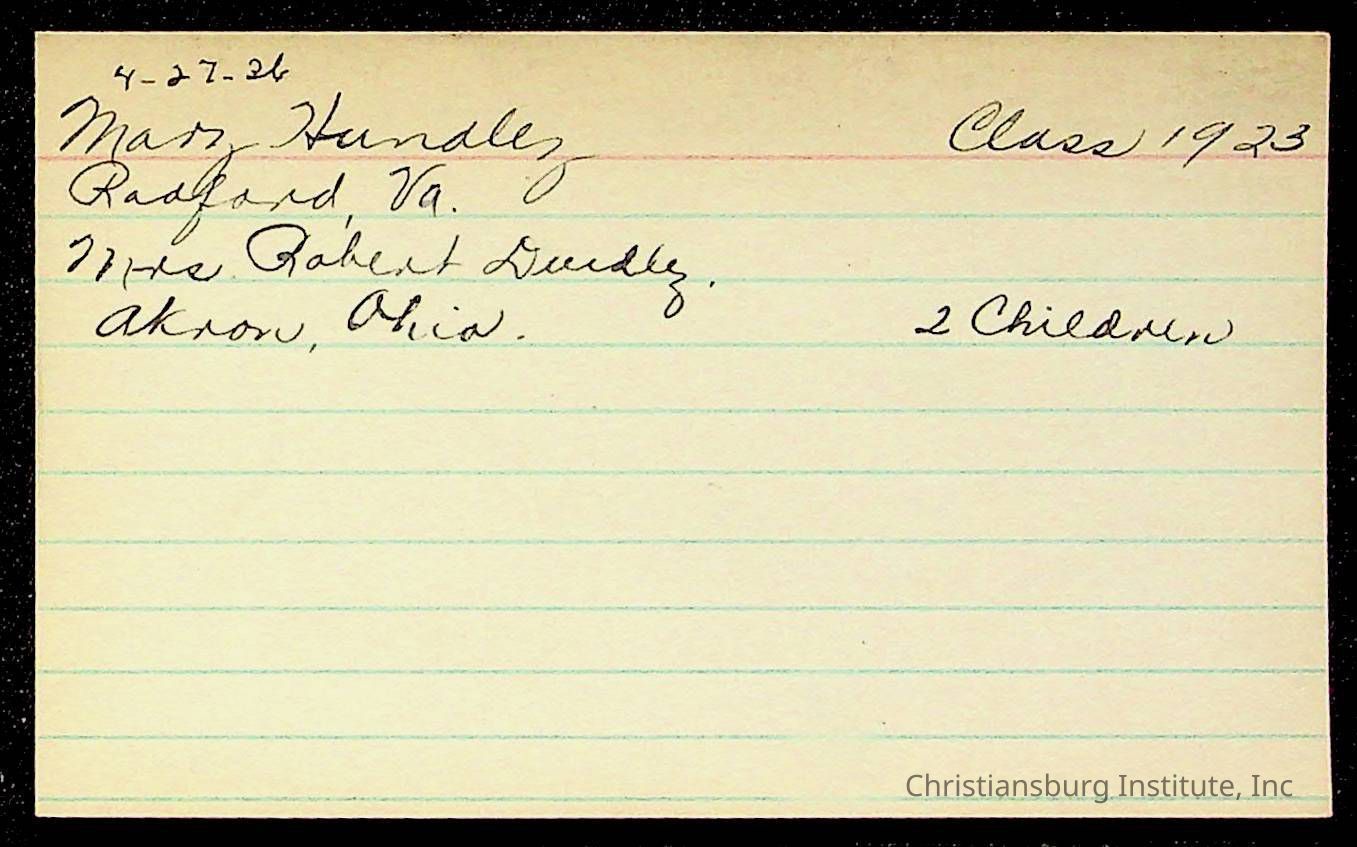 4-27-36
Mary Hundley Class 1923
Radford, Va.
Mrs. Robert Dudley.
Akron, Ohio. 2 Children
Christiansburg Institute, Inc